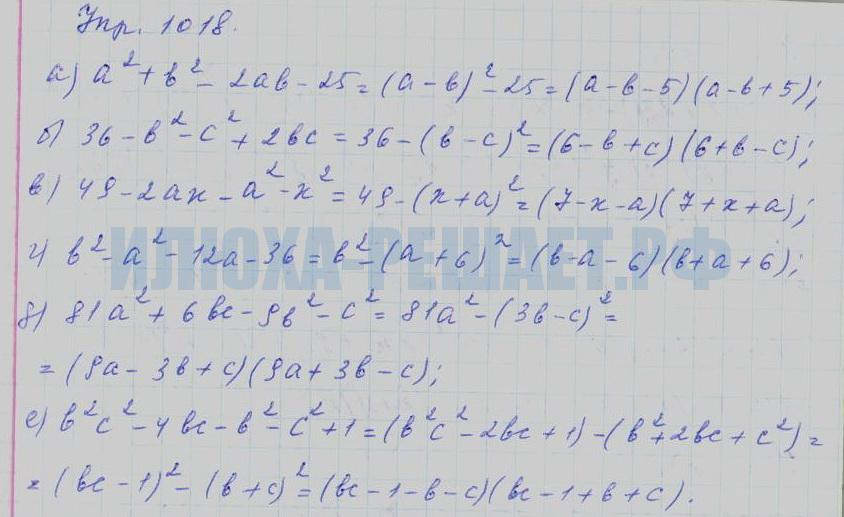 Упр. 1018.
а) a² + b² - 2ab - 25 = (a - b)² - 25 = (a - b - 5)(a - b + 5);
б) 36 - b² - c² + 2bc = 36 - (b - c)² = (6 - b + c)(6 + b - c);
в) 49 - 2ax - a² - x² = 49 - (x + a)² = (7 - x - a)(7 + x + a);
ИЛЮХА-РЕШАЕТ.РФ
г) b² - a² - 12a - 36 = b² - (a + 6)² = (b - a - 6)(b + a + 6);
д) 81a² + 6bc - 9b² - c² = 81a² - (3b - c)² =
= (9a - 3b + c)(9a + 3b - c);
е) b²c² - 4bc - b² - c² + 1 = (b²c² - 2bc + 1) - (b² + 2bc + c²) =
= (bc - 1)² - (b + c)² = (bc - 1 - b - c)(bc - 1 + b + c).